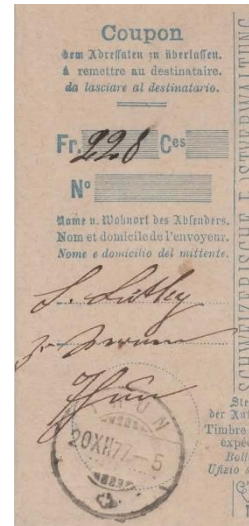 Coupon
dem Adressaten zu überlassen.
à remettre au destinataire.
da lasciare al destinatario.
Fr. 228 Ces
No
Name u. Wohnort des Absenders.
Nom et domicile de l'envoyeur.
Nome e domicilio del mittente.
Thun
THUN
20 XII 77 - 5
SCHWEIZERISCHE POSTVERWALTUNG
Ste
der Au
Timbre
expé
Boll
Ufizio